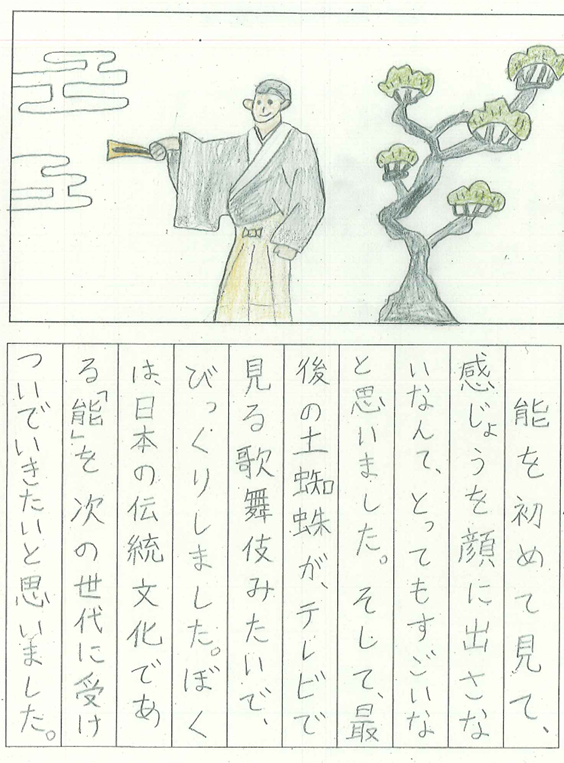 能を初めて見て、
感じょうを顔に出さな
いなんて、とってもすごいな
と思いました。そして、最
後の土蜘蛛が、テレビで
見る歌舞伎みたいで、
びっくりしました。ぼく
は、日本の伝統文化であ
る「能」を次の世代に受け
ついでいきたいと思いました。